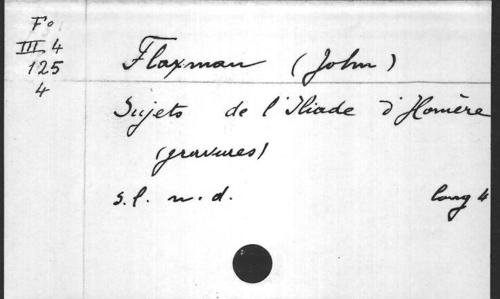 F°
III 4
125
4
Flaxman (John)
Sujets de l'Iliade d'Homère
(gravures)
s.l. n.d. long 4